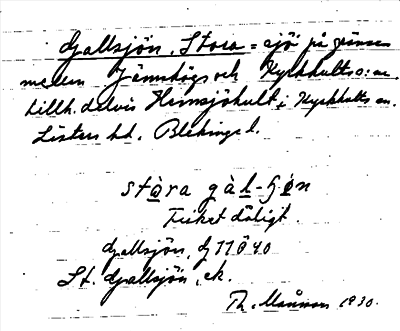 Gallsjön, Stora = sjö på gränsen
mellan Jämshögs och Kyrkhults s:nr.
tillh. delvis Hemsjöhult i Kyrkhults sn.
Listers hd. Blekinge l.
stòra gàl-ʃøn
Fisket dåligt.
Gallsjön, G
St. Gallsjön, ek.
Th. 1930.